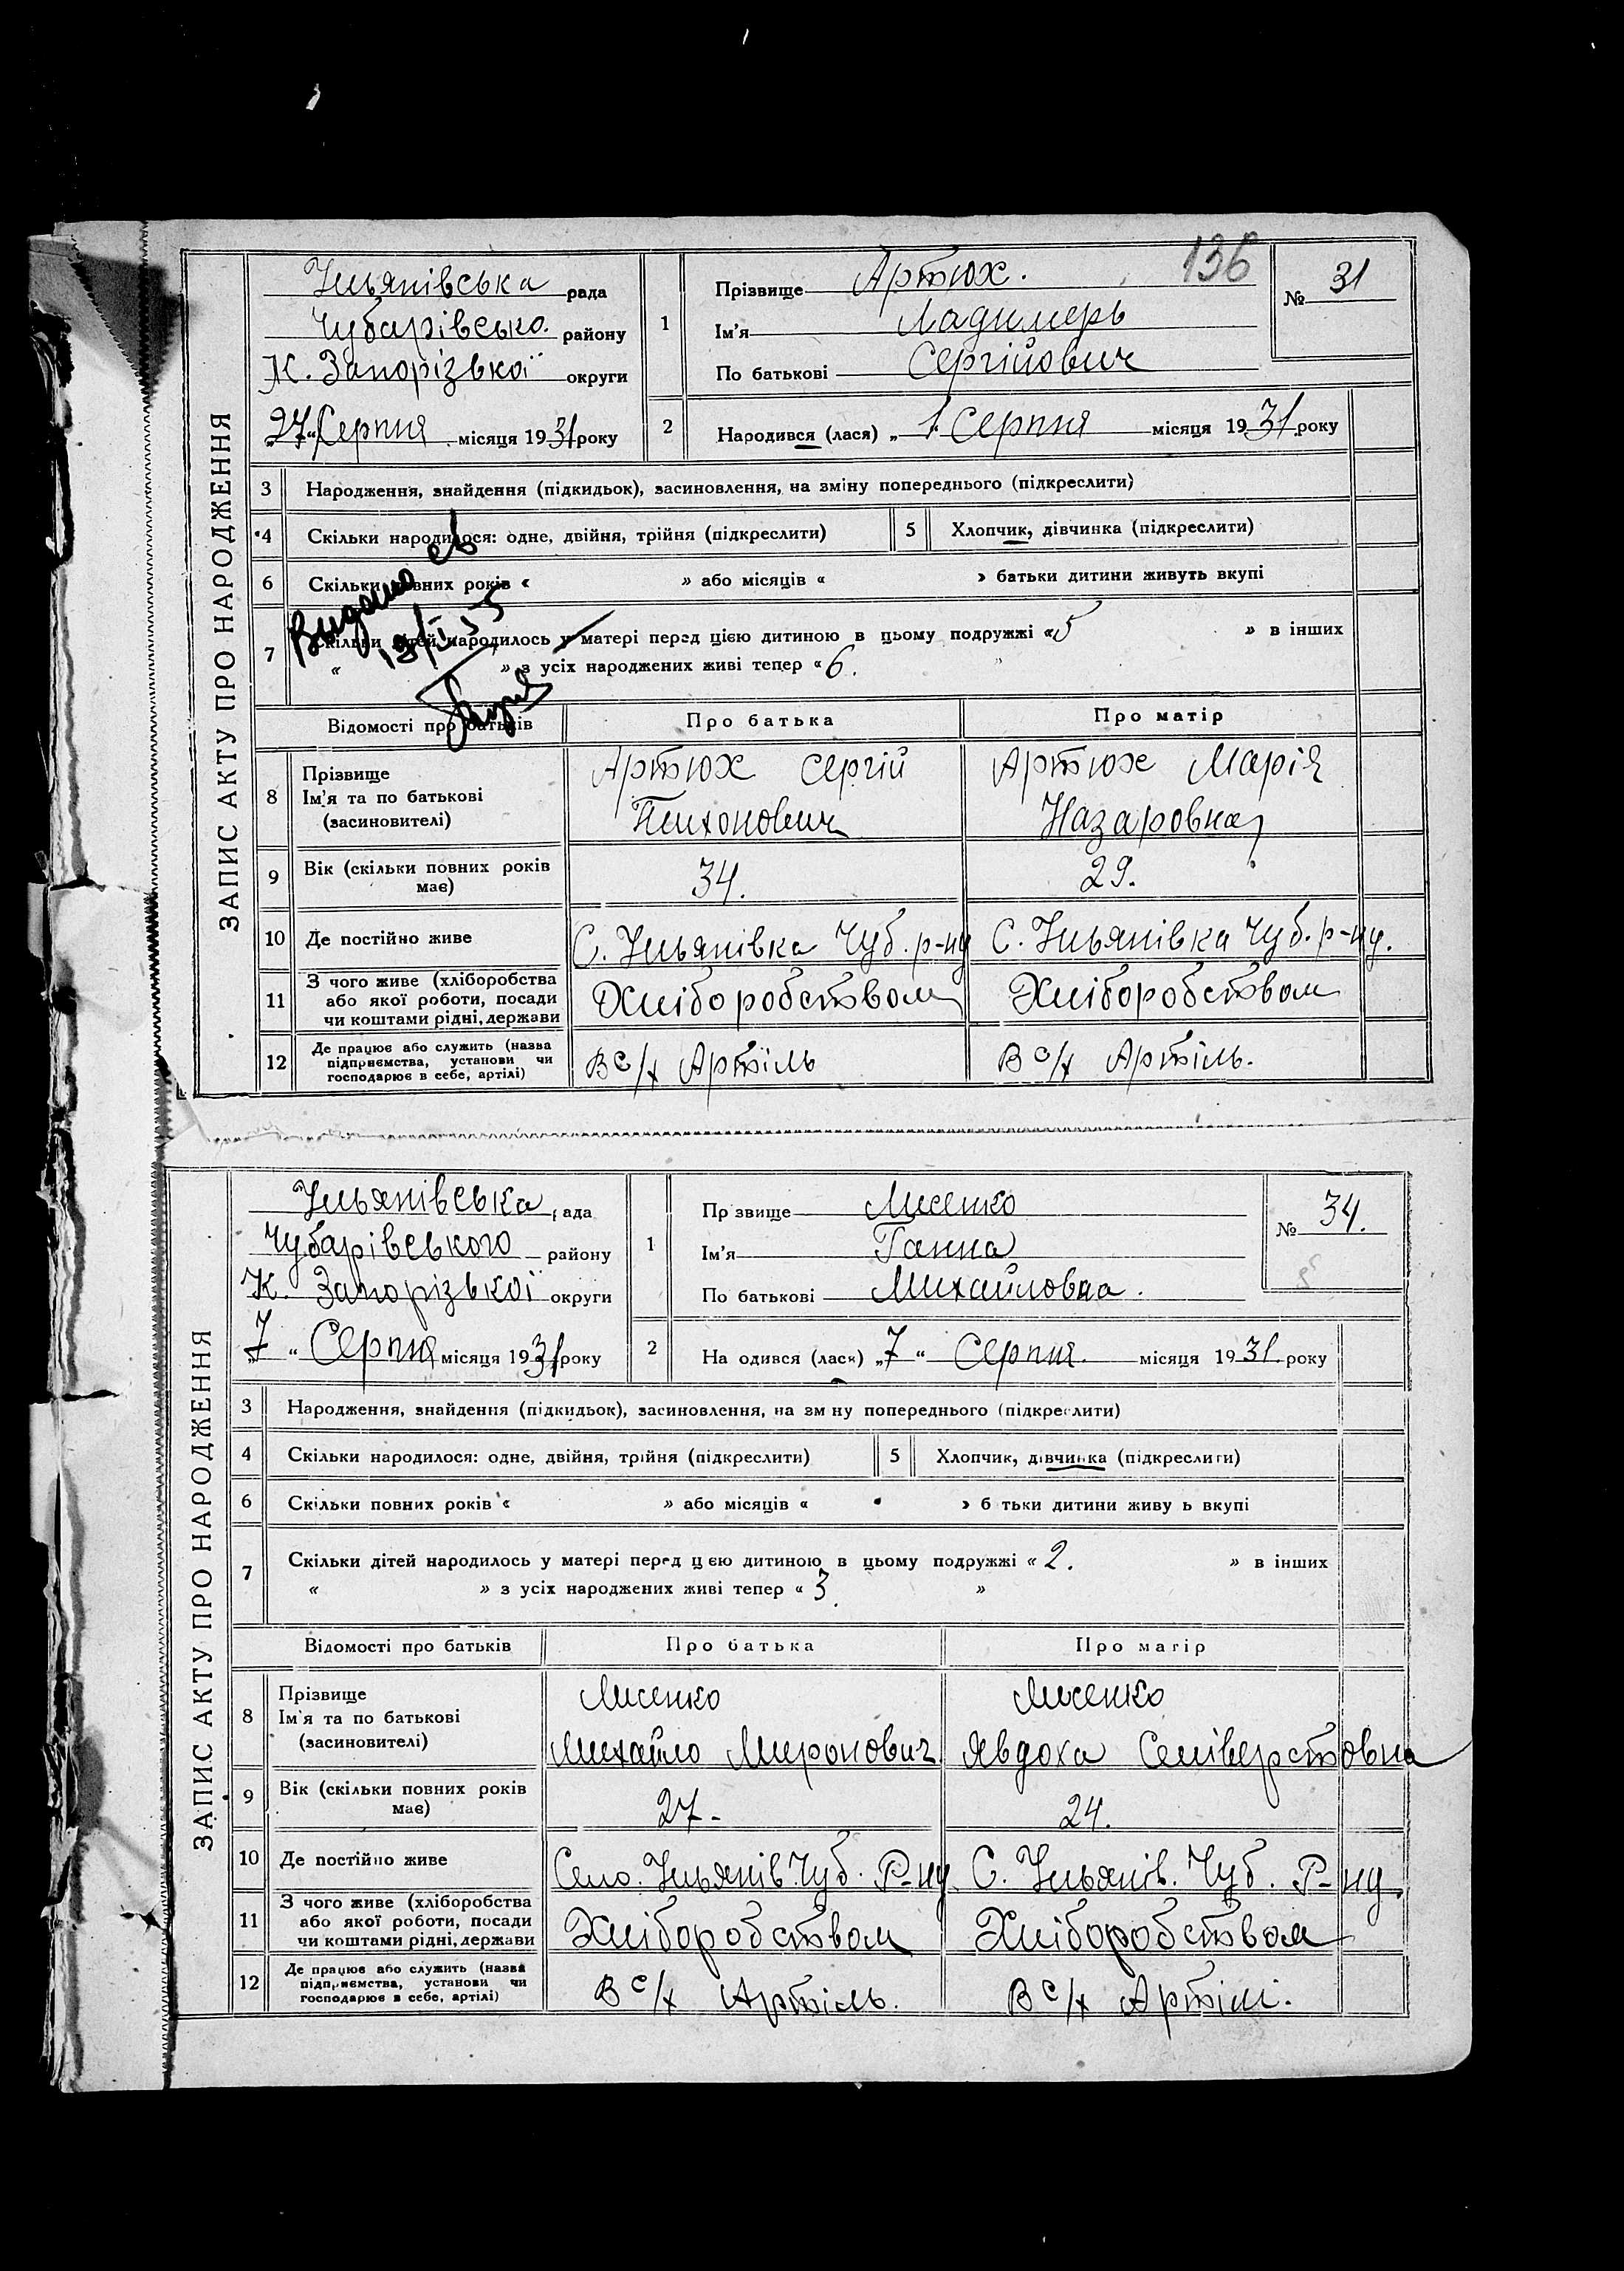 136
ЗАПИС АКТУ ПРО НАРОДЖЕННЯ
Ульянівська рада
Чубарівсько. району
К. Запорізької округи
„27“ Серпня місяця 1931 року
1
Прізвище Артюх.
Ім'я Ладимерь
По батькові Сергійович
№ 31
2
Народився (лася) „1“ Серпня місяця 1931 року
3 Народження, знайдення (підкидьок), засиновлення, на зміну попереднього (підкреслити)
4 Скільки народилося: одне, двійня, трійня (підкреслити)
5 Хлопчик, дівчинка (підкреслити)
6 Скільки повних років « » або місяців « » батьки дитини живуть вкупі
Видано св
7 Скільки дітей народилось у матері перед цією дитиною в цьому подружжі «5 » в інших
« » з усіх народжених живі тепер «6.
Відомості про батьків Про батька Про матір
8 Прізвище Ім'я та по батькові (засиновителі)
Артюх Сергій Артюх Марія
Тихонович Назаровна
9 Вік (скільки повних років має) 34. 29.
10 Де постійно живе С. Ульянівка Чуб. р-ну С. Ульянівка Чуб. р-ну.
11 З чого живе (хліборобства або якої роботи, посади чи коштами рідні, держави Хліборобством Хліборобством
12 Де працює або служить (назва підприємства, установи чи господарює в себе, артілі) В с/х Артіль В с/х Артіль.
ЗАПИС АКТУ ПРО НАРОДЖЕННЯ
Ульянівська рада
Чубарівського району
К. Запорізької округи
„7“ Серпня місяця 1931 року
1
Пр звище Лисенко
Ім'я Ганна
По батькові Михайловна.
№ 34.
2
На одився (лася) „7“ Серпня. місяця 1931 року
3 Народження, знайдення (підкидьок), засиновлення, на зм ну попереднього (підкреслити)
4 Скільки народилося: одне, двійня, трійня (підкреслити)
5 Хлопчик, дівчинка (підкреслити)
6 Скільки повних років « » або місяців « » б тьки дитини живу ь вкупі
7 Скільки дітей народилось у матері перед цією дитиною в цьому подружжі «2. » в інших
« » з усіх народжених живі тепер «3. »
Відомості про батьків Про батька Про матір
8 Прізвище Ім'я та по батькові (засиновителі)
Лисенко Лисенко
Михайло Миронович Явдоха Селіверстовна
9 Вік (скільки повних років має) 27- 24.
10 Де постійно живе Село. Ульянів. Чуб. Р-ну. С. Ульянів. Чуб. Р-ну.
11 З чого живе (хліборобства або якої роботи, посади чи коштами рідні, держави Хліборобством Хліборобством
12 Де працює або служить (назва підприємства, установи чи господарює в себе, артілі) В с/х Артіль. В с/х Артілі.